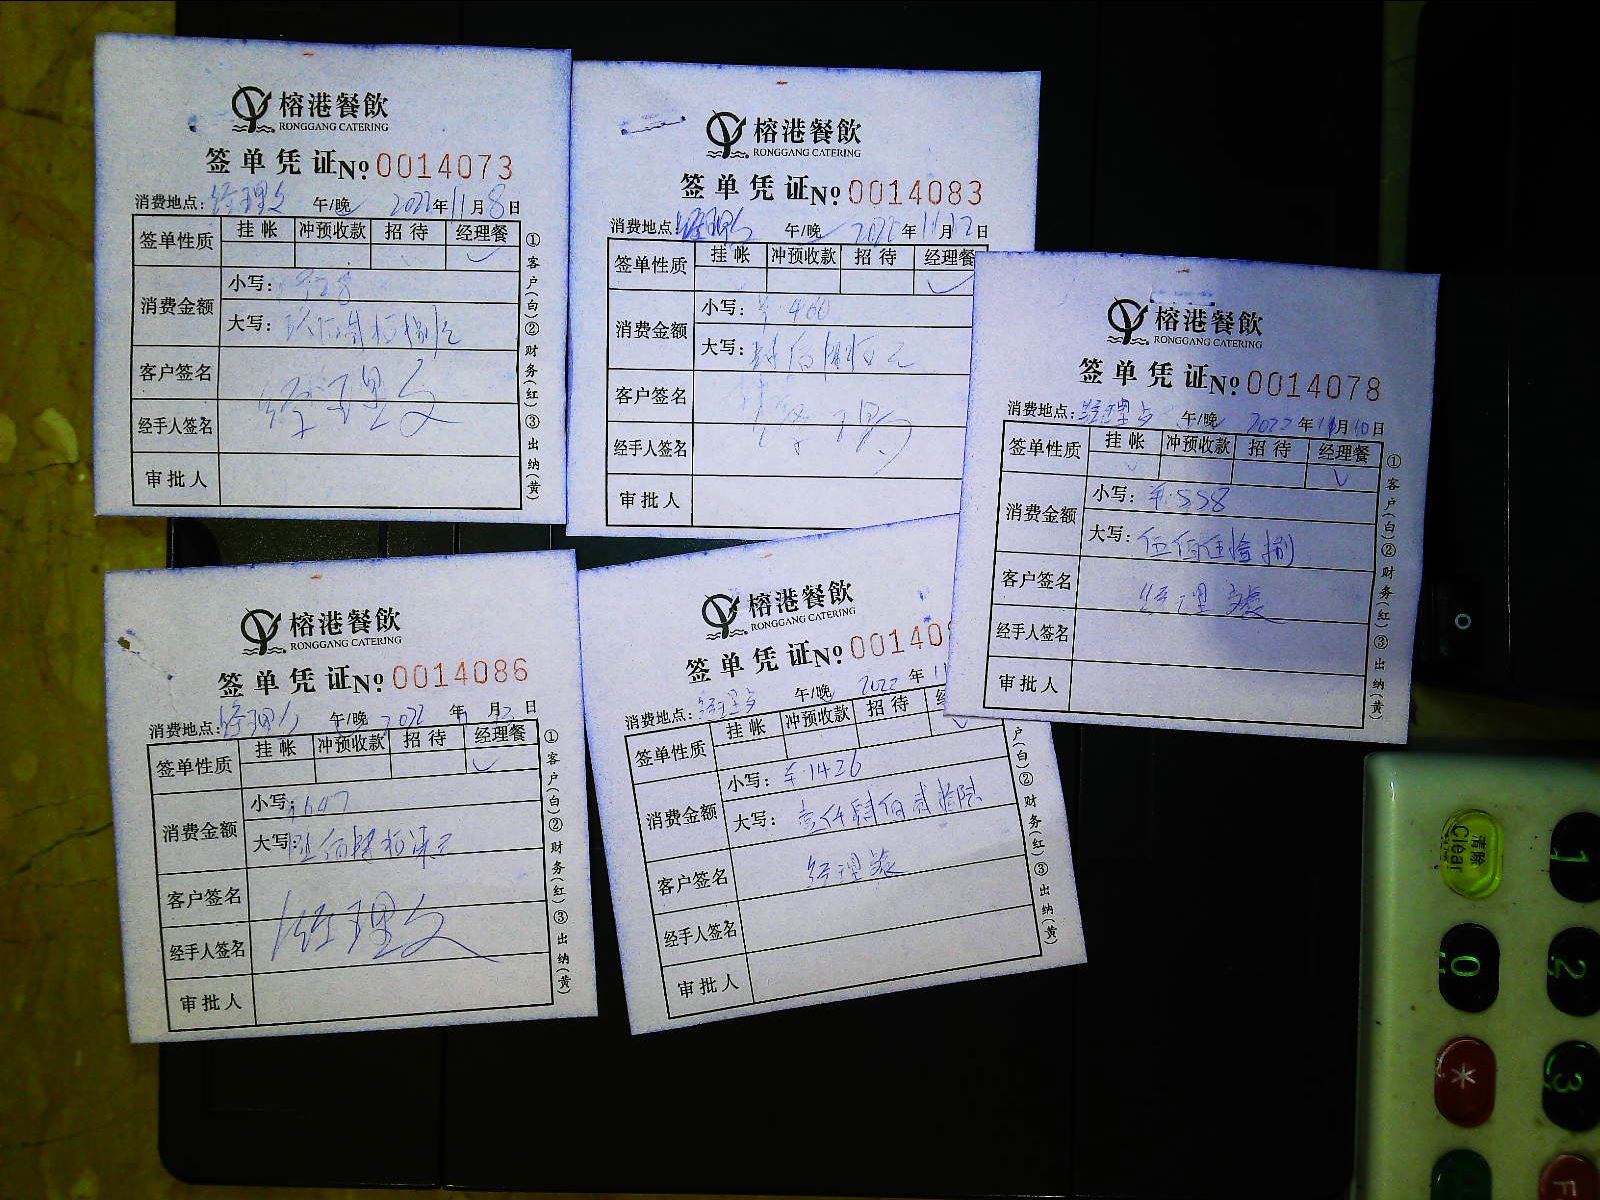 榕港餐飲
RONGGANG CATERING
签单凭证 No 0014073
消费地点: 经理 午/晚 2022年11月8日
签单性质 挂帐 冲预收款 招待 经理餐
消费金额 小写: 928
大写: 玖佰贰拾捌元
客户签名 经理
经手人签名
审批人
①客户(白)②财务(红)③出纳(黄)
榕港餐飲
RONGGANG CATERING
签单凭证 No 0014083
消费地点: 经理 午/晚 2022年11月12日
签单性质 挂帐 冲预收款 招待 经理餐
消费金额 小写: ¥:460
大写: 肆佰陆拾元
客户签名
经手人签名
审批人
榕港餐飲
RONGGANG CATERING
签单凭证 No 0014078
消费地点: 经理 午/晚 2022年11月10日
签单性质 挂帐 冲预收款 招待 经理餐
消费金额 小写: ¥:558
大写: 伍佰伍拾捌
客户签名 经理
经手人签名
审批人
①客户(白)②财务(红)③出纳(黄)
榕港餐飲
RONGGANG CATERING
签单凭证 No 0014086
消费地点: 经理 午/晚 2022年 月 日
签单性质 挂帐 冲预收款 招待 经理餐
消费金额 小写: 647
大写: 陆佰肆拾柒元
客户签名 经理
经手人签名
审批人
①客户(白)②财务(红)③出纳(黄)
榕港餐飲
RONGGANG CATERING
签单凭证 No 00140
消费地点: 经理 午/晚 2022年11
签单性质 挂帐 冲预收款 招待
消费金额 小写: ¥:1426
大写: 壹仟肆佰贰拾陆
客户签名 经理
经手人签名
审批人
户(白)②财务(红)③出纳(黄)
清除
Clear
1
0
2
*
3
F